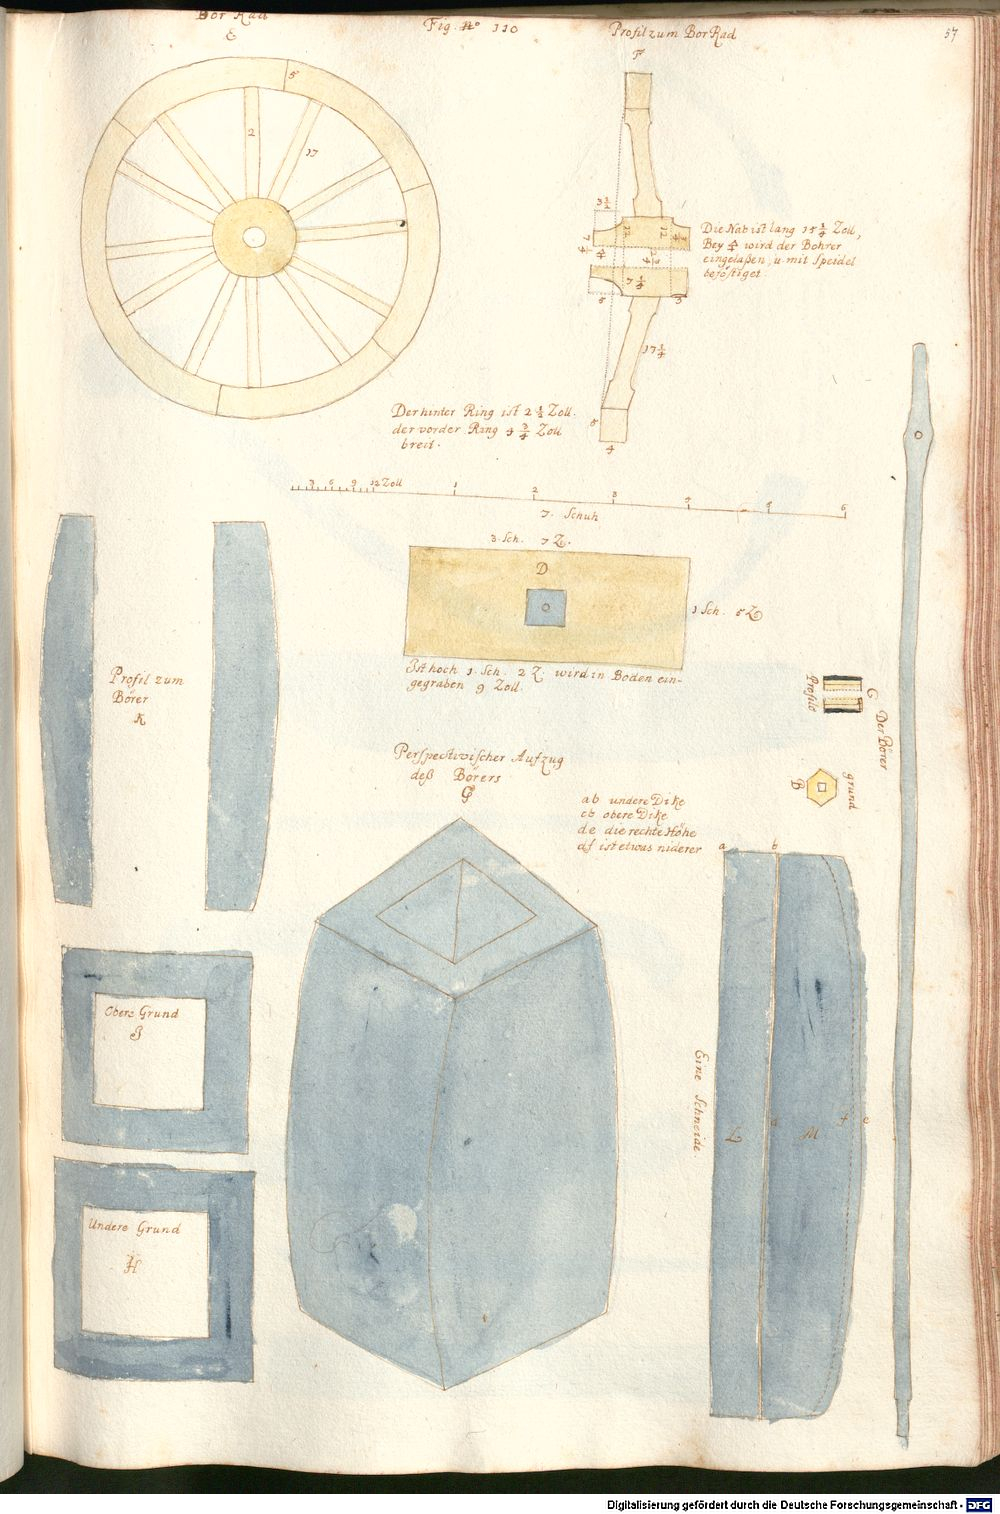 Bor Rad
E
Fig. No 110
Profil zum Bor Rad
F
57
5
2
17
3 1/2
12
12
5
7 1/4
3
17 1/4
5
4
Die Nab ist lang 15 1/4 Zoll,
Bey wird der Bohrer
eingelaßen, u. mit Speidel
beföstiget.
Der hinter Ring ist 2 1/2 Zoll.
der vorder Ring 4 3/4 Zoll
breit.
3 6 9 12 Zoll 1 2 3 4 5 6
7. Schuh
3. Sch. 7 Z.
D
1 Sch. 5 Z
Ist hoch 1. Sch. 2 Z. wird in Boden ein-
gegraben 9 Zoll.
Profil zum
Börer
K
Profile
C
Der Börer
grund
B
Perspectivischer Aufzug
deß Börers
G
ab undere Dike
cb obere Dike
de die rechte Höhe
df ist etwas niderer
a b
Obere Grund
J
Undere Grund
H
Eine Schneide.
L d M f e
Digitalisierung gefördert durch die Deutsche Forschungsgemeinschaft - DFG